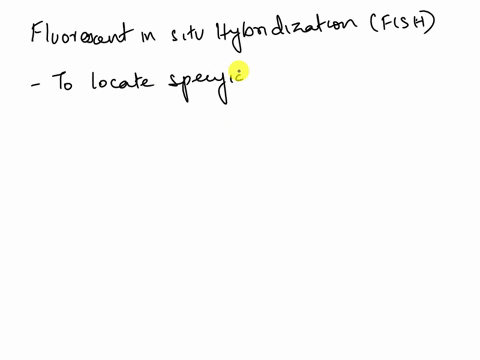 Fluorescent in situ Hybridization (FISH)
- To locate specifi